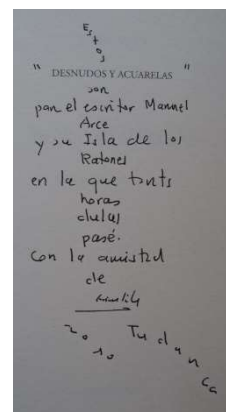 Estos
" DESNUDOS Y ACUARELAS "
son
para el escritor Manuel
Arce
y su Isla de los
Ratones
en la que tantas
horas
dulces
pasé.
Con la amistad
de
2010
Tudanca